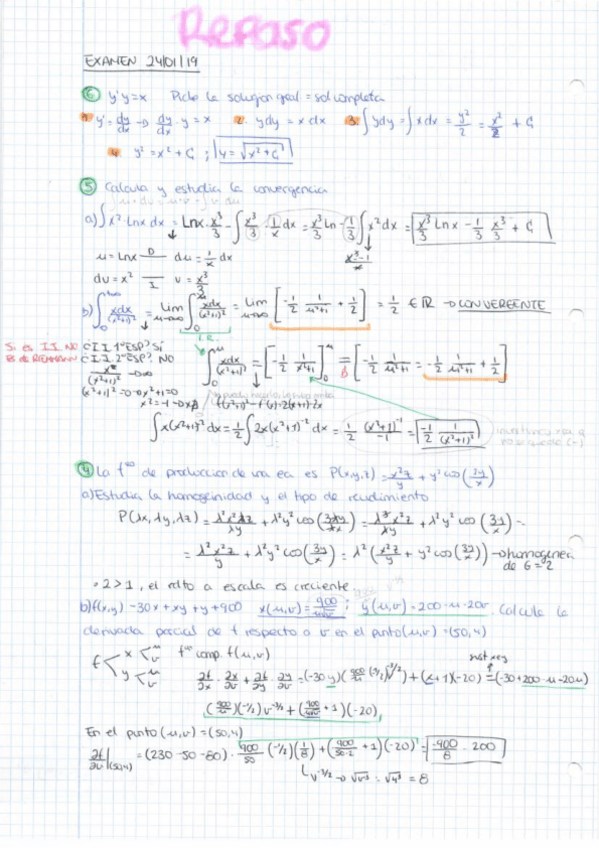 Repaso
EXAMEN 24/01/19
6 y'y=x Pide la solución gral = sol completa
1. y' = dy/dx → dy/dx · y = x 2. y dy = x dx 3. ∫ y dy = ∫ x dx = y²/2 = x²/2 + C₁
4. y² = x² + C₁ ; y = √(x² + C₁)
5 Calcula y estudia la convergencia
a) ∫ x² · Lnx dx = Lnx · x³/3 - ∫ x³/3 · 1/x dx = x³/3 Ln - 1/3 ∫ x² dx = x³/3 Lnx - 1/3 x³/3 + C₁
u = Lnx D du = 1/x dx
dv = x² I v = x³/3
b) ∫₀^{+∞} xdx/(x²+1)² = Lim ∫₀^u xdx/(x²+1)² = Lim [-1/2 1/(u²+1) + 1/2] = 1/2 ∈ ℝ → CONVERGENTE
I.R.
Si es I.I. NO
B de RIEMANN
¿I.I. 1ª ESP? SÍ
¿I.I. 2ª ESP? NO
∫₀^u xdx/(x²+1)² = [-1/2 1/(x²+1)]₀^u = [-1/2 1/(u²+1) = -1/2 1/(u²+1) + 1/2]
(x²+1)² = 0 → x²+1=0
∫ x(x²+1)⁻² dx = 1/2 ∫ 2x(x²+1)⁻² dx = 1/2 (x²+1)⁻¹/-1 = -1/2 1/(x²+1)²
4 La fᵒⁿ de produccion de una ea es P(x,y,z) = x²z/y + y² cos(3y/x)
a) Estudia la homogeinidad y el tipo de rendimiento
P(λx, λy, λz) = λ²x²λz/λy + λ²y² cos(3λy/λx) = λ³x²z/λy + λ²y² cos(3y/x) =
= λ²x²z/y + λ²y² cos(3y/x) = λ²(x²z/y + y² cos(3y/x)) → homogenea de G=2
· 2>1, el rdto a escala es creciente
b) f(x,y) -30x + xy + y + 900 y(u,v) = 200 - u - 20v. Calcula la
derivada parcial de f respecto a v en el punto (u,v) = (50,4)
f x u v y u v fᵒⁿ comp. f(u,v)
∂f/∂x · ∂x/∂v + ∂f/∂y · ∂y/∂v + (x+1)(-20) (-30+200-u-20v)
(-1/2) v^{-3/2} + (-20)
En el punto (u,v) = (50,4)
∂f/∂v|(50,4) = (230-50-80) · 900/50 (-1/2)(1/8) + (900/50·2 + 1)(-20) = -900/8 - 200
v^{-3/2} → √v³ = √4³ = 8